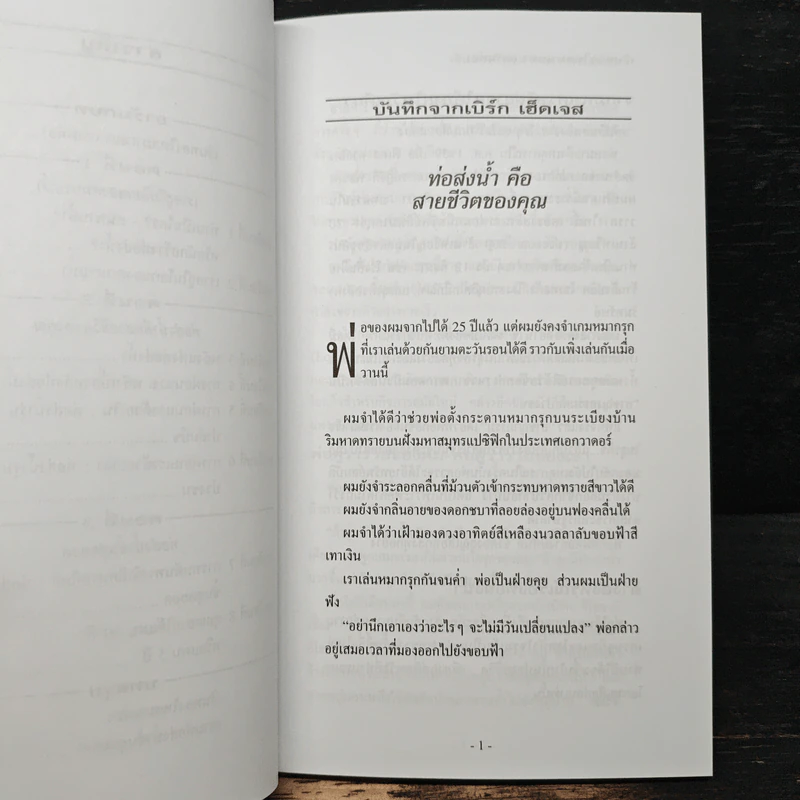 บันทึกจากเบิร์ก เฮ็ดเจส
ท่อส่งน้ำ คือ
สายชีวิตของคุณ
พ่อของผมจากไปได้ 25 ปีแล้ว แต่ผมยังคงจำเกมหมากรุก
ที่เราเล่นด้วยกันยามตะวันรอนได้ดี ราวกับเพิ่งเล่นกันเมื่อ
วานนี้
ผมจำได้ดีว่าช่วยพ่อตั้งกระดานหมากรุกบนระเบียงบ้าน
ริมหาดทรายบนฝั่งมหาสมุทรแปซิฟิกในประเทศเอกวาดอร์
ผมยังจำระลอกคลื่นที่ม้วนตัวเข้ากระทบหาดทรายสีขาวได้ดี
ผมยังจำกลิ่นอายของดอกชบาที่ลอยล่องอยู่บนฟองคลื่นได้
ผมจำได้ว่าเฝ้ามองดวงอาทิตย์สีเหลืองนวลลาลับขอบฟ้าสี
เทาเงิน
เราเล่นหมากรุกกันจนค่ำ พ่อเป็นฝ่ายคุย ส่วนผมเป็นฝ่าย
ฟัง
“อย่านึกเอาเองว่าอะไรๆ จะไม่มีวันเปลี่ยนแปลง” พ่อกล่าว
อยู่เสมอเวลาที่มองออกไปยังขอบฟ้า
- 1 -